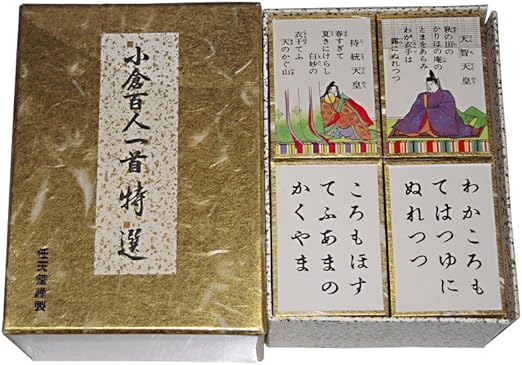 小倉百人一首 特選
任天堂謹製
天智天皇
秋の田の
かりほの庵の
とまをあらみ
わが衣手は
露にぬれつつ
持統天皇
春すぎて
夏きにけらし
白妙の
衣干てふ
天のかぐ山
わかころも
てはつゆに
ぬれつつ
ころもほす
てふあまの
かくやま